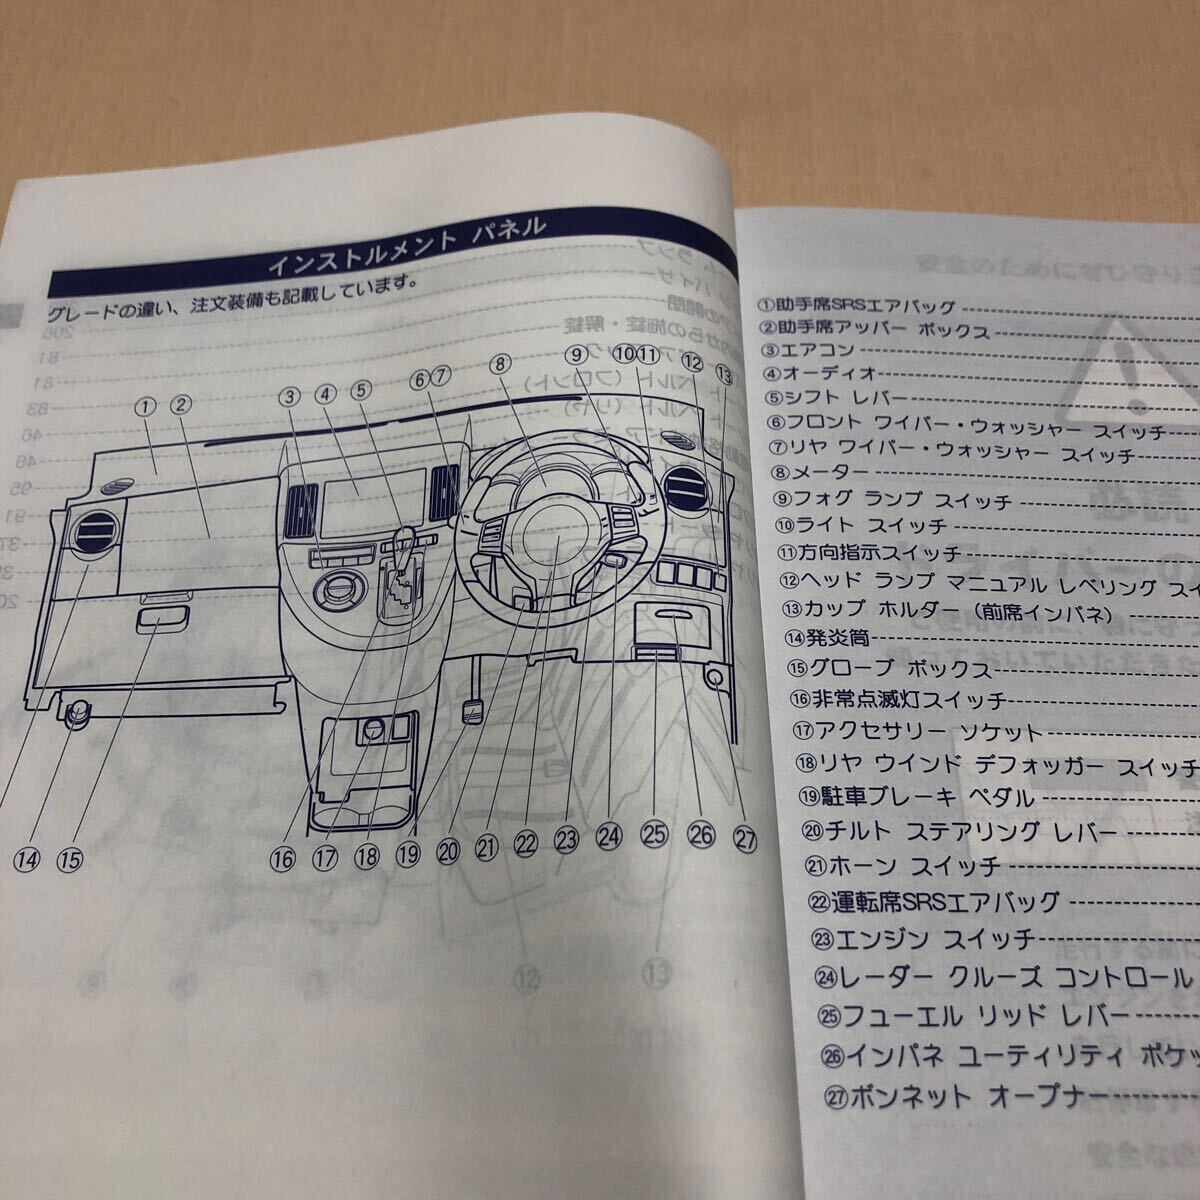 インストルメント パネル
グレードの違い、注文装備も記載しています。
① ② ③ ④ ⑤ ⑥ ⑦ ⑧ ⑨ ⑩ ⑪ ⑫ ⑬
⑭ ⑮ ⑯ ⑰ ⑱ ⑲ ⑳ ㉑ ㉒ ㉓ ㉔ ㉕ ㉖ ㉗
①助手席SRSエアバッグ
②助手席アッパー ボックス
③エアコン
④オーディオ
⑤シフト レバー
⑥フロント ワイパー・ウォッシャー スイッチ
⑦リヤ ワイパー・ウォッシャー スイッチ
⑧メーター
⑨フォグ ランプ スイッチ
⑩ライト スイッチ
⑪方向指示スイッチ
⑫ヘッド ランプ マニュアル レベリング スイ
⑬カップ ホルダー（前席インパネ）
⑭発炎筒
⑮グローブ ボックス
⑯非常点滅灯スイッチ
⑰アクセサリー ソケット
⑱リヤ ウインド デフォッガー スイッチ
⑲駐車ブレーキ ペダル
⑳チルト ステアリング レバー
㉑ホーン スイッチ
㉒運転席SRSエアバッグ
㉓エンジン スイッチ
㉔レーダー クルーズ コントロール
㉕フューエル リッド レバー
㉖インパネ ユーティリティ ポケッ
㉗ボンネット オープナー